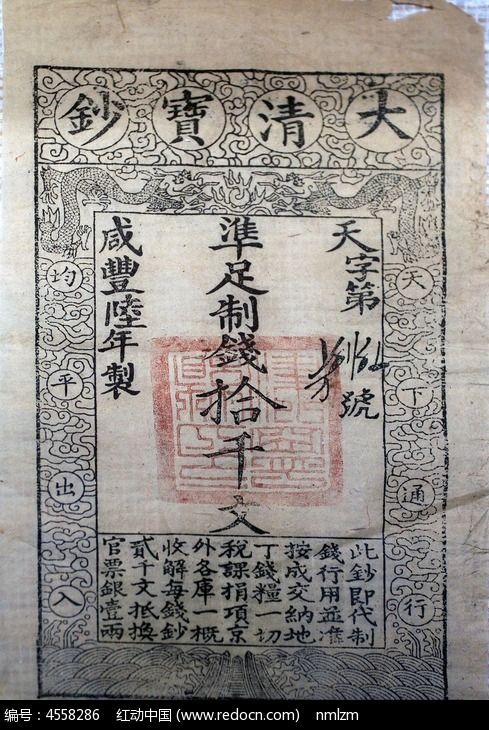 大清寶鈔
天字第
號
準足制錢拾千文
咸豐陸年製
天下通行
均平出入
此鈔即代制
錢行用並准
按成交納地
丁錢糧一切
稅課捐項京
外各庫一概
收解每錢鈔
貳千文抵換
官票銀壹兩
编号：4558286 红动中国 (www.redocn.com) nmlzm